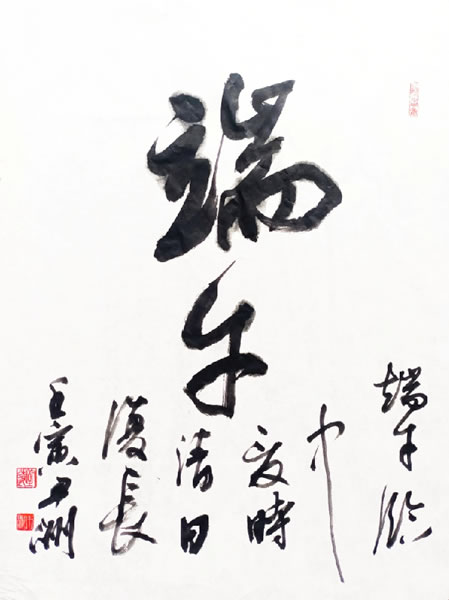 端午
端午臨
中
夏時
清日
復長
壬寅